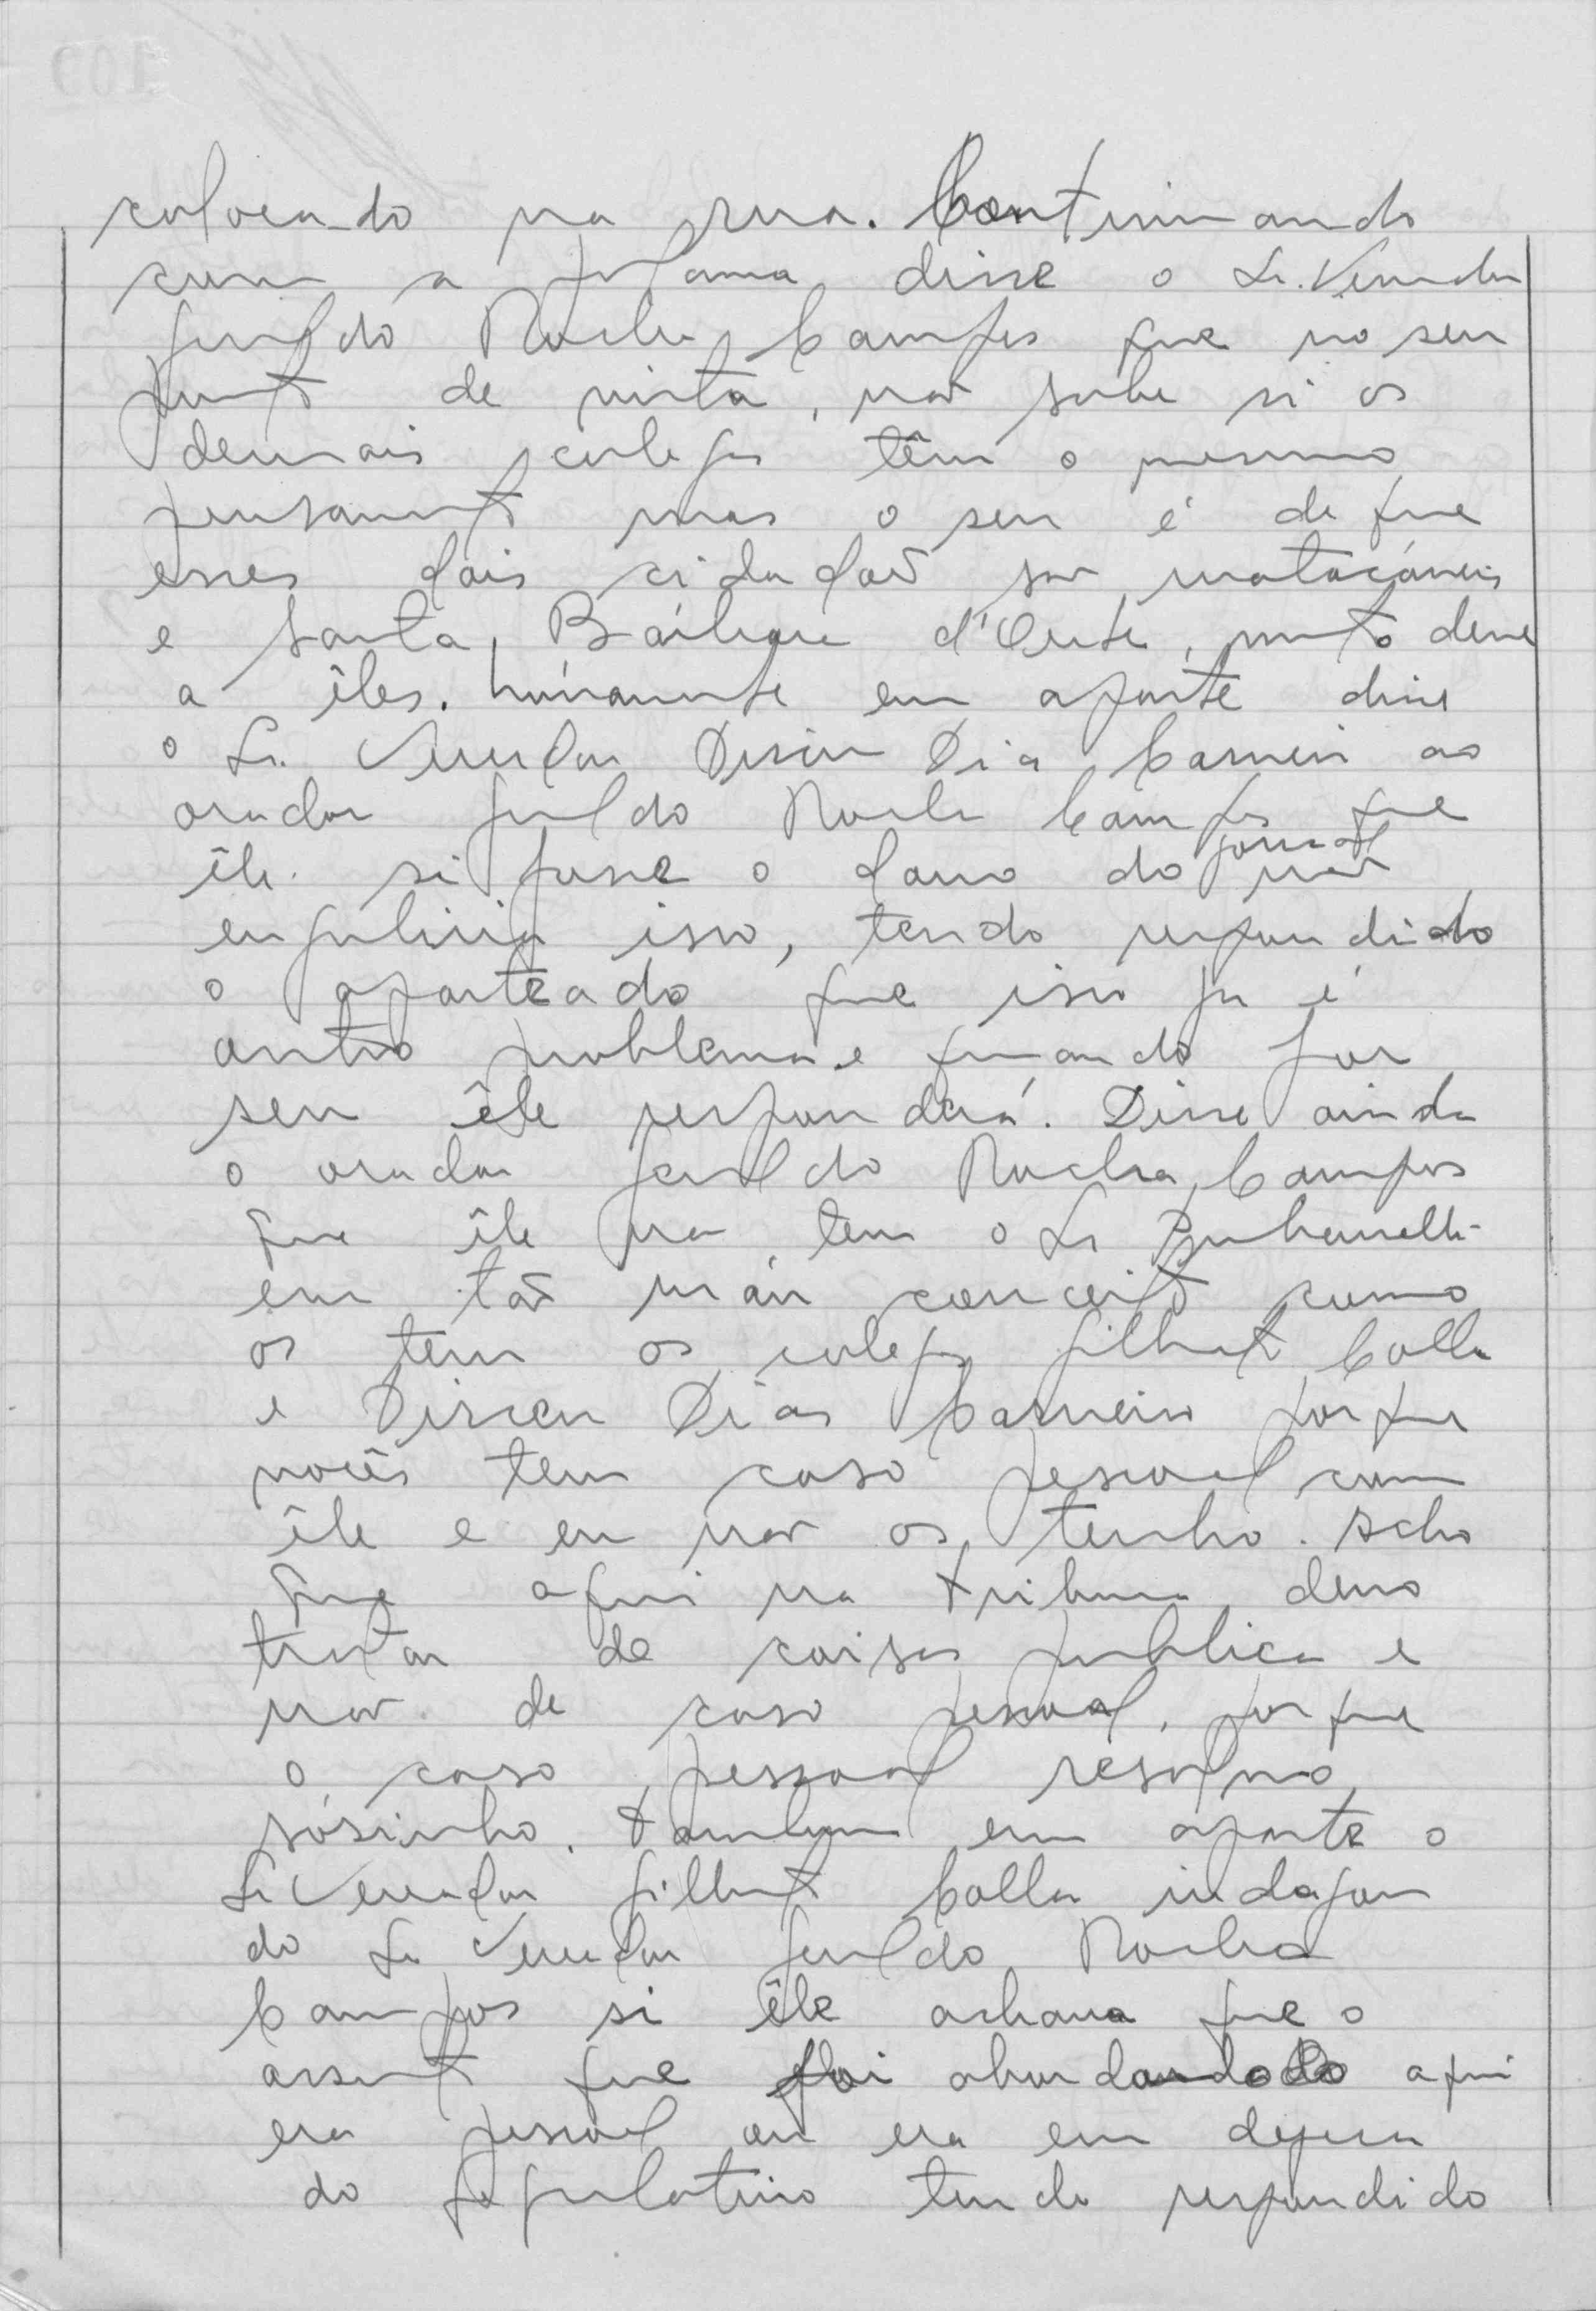 colocando na rua. Continuando
com a palavra disse o Sr. Vereador
Geraldo Rocha Campos que no seu
ponto de vista, não sabe si os
demais colegas têm o mesmo
pensamento mas o seu é de que
esses dois cidadão são inatacáveis
e Santa Bárbara d'Oeste, muito deve
a êles. Novamente em aparte disse
o Sr. Vereador Dirceu Dias Carneiro ao
orador Geraldo Rocha Campos que
êle si fosse o dono do jornal não
enguliria isso, tendo respondido
o aparteado que isso ja é
outro problema e quando for
seu êle responderá. Disse ainda
o orador Geraldo Rocha Campos
que êle não tem o Sr
em tão máu conceito como
os tem os colegas Gilberto Colla
e Dirceu Dias Carneiro porque
vocês tem caso pessoal com
êle e eu não os tenho. Acho
que aqui na tribuna devo
tratar de coisas publica e
não de caso pessoal, porque
o caso pessoal resolvo
sósinho. Tambem em aparte o
Sr Vereador Gilberto Colla indagou
do Sr Vereador Geraldo Rocha
Campos si êle achava que o
assunto que foi abordando aqui
era pessoal ou era em defesa
do Legislativo tendo respondido